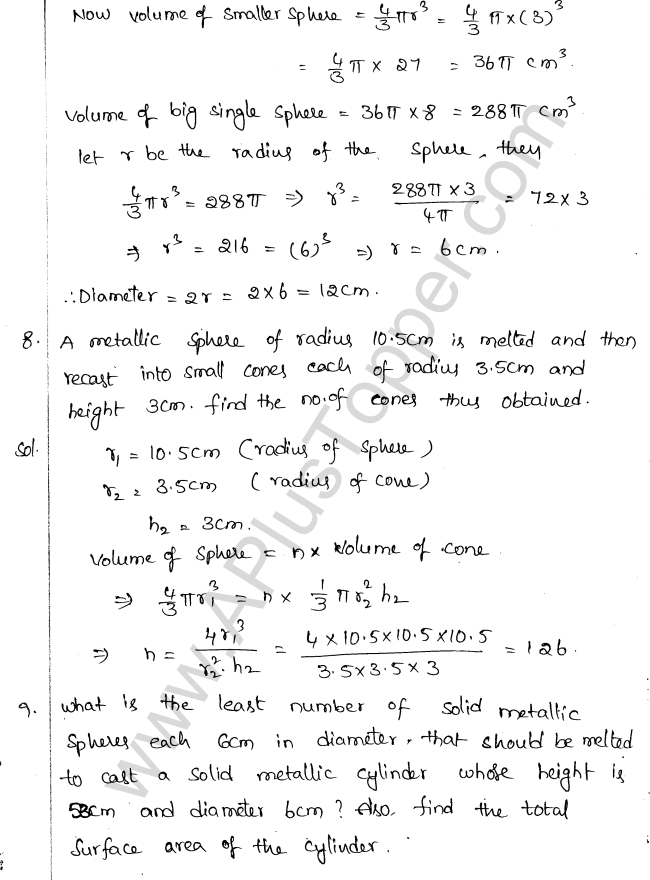 Now volume of smaller sphere = 4/3 πr³ = 4/3 π×(3)³
= 4/3 π × 27 = 36π cm³.
volume of big single sphere = 36π × 8 = 288π cm³
let r be the radius of the sphere, they
4/3 πr³ = 288π ⇒ r³ = (288π × 3)/(4π) = 72×3
⇒ r³ = 216 = (6)³ ⇒ r = 6cm.
∴Diameter = 2r = 2×6 = 12cm.
8. A metallic sphere of radius 10.5cm is melted and then
recast into small cones each of radius 3.5cm and
height 3cm. find the no.of cones thus obtained.
Sol. r₁ = 10.5cm (radius of sphere)
r₂ = 3.5cm (radius of cone)
h₂ = 3cm.
Volume of sphere = n× Volume of cone
⇒ 4/3 πr₁³ = n × 1/3 π r₂² h₂
⇒ n = 4r₁³/(r₂². h₂) = (4×10.5×10.5×10.5)/(3.5×3.5×3) = 126.
9. what is the least number of solid metallic
spheres each 6cm in diameter, that should be melted
to cast a solid metallic cylinder whose height is
and diameter 6cm? Also, find the total
Surface area of the cylinder.
www.APlusTopper.com